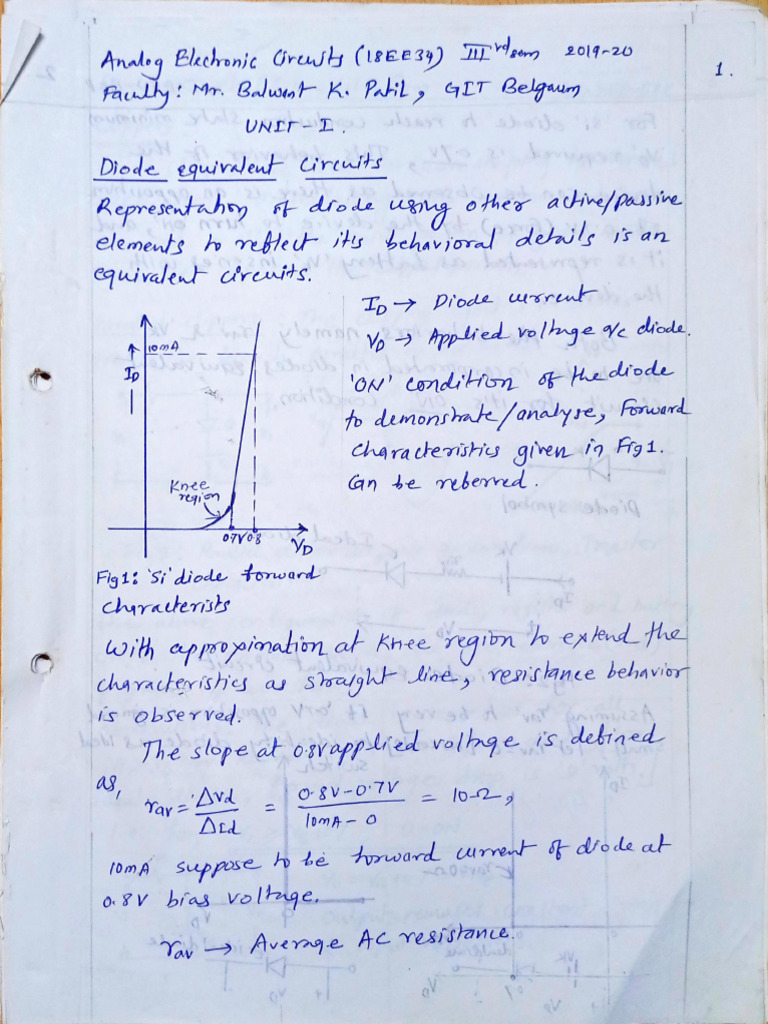 Analog Electronic Circuits (18EE34) III rd sem 2019-20
1.
Faculty: Mr. Balwant K. Patil, GIT Belgaum
UNIT-I.
Diode equivalent Circuits
Representation of diode using other active/passive
elements to reflect it's behavioral details is an
equivalent circuits.
ID → Diode current
VD → Applied voltage a/c diode.
'ON' condition of the diode
to demonstrate/analyse, Forward
characteristics given in Fig1.
Can be referred.
10mA
ID
Knee
region
0.7V 0.8
VD
Fig1: 'Si' diode forward
characterists
With approximation at Knee region to extend the
characteristics as straight line, resistance behavior
is observed.
The slope at 0.8V applied voltage is defined
as,
rav = ΔVd / ΔId = 0.8V-0.7V / 10mA-0 = 10Ω,
10mA suppose to be forward current of diode at
0.8V bias voltage.
rav → Average AC resistance.